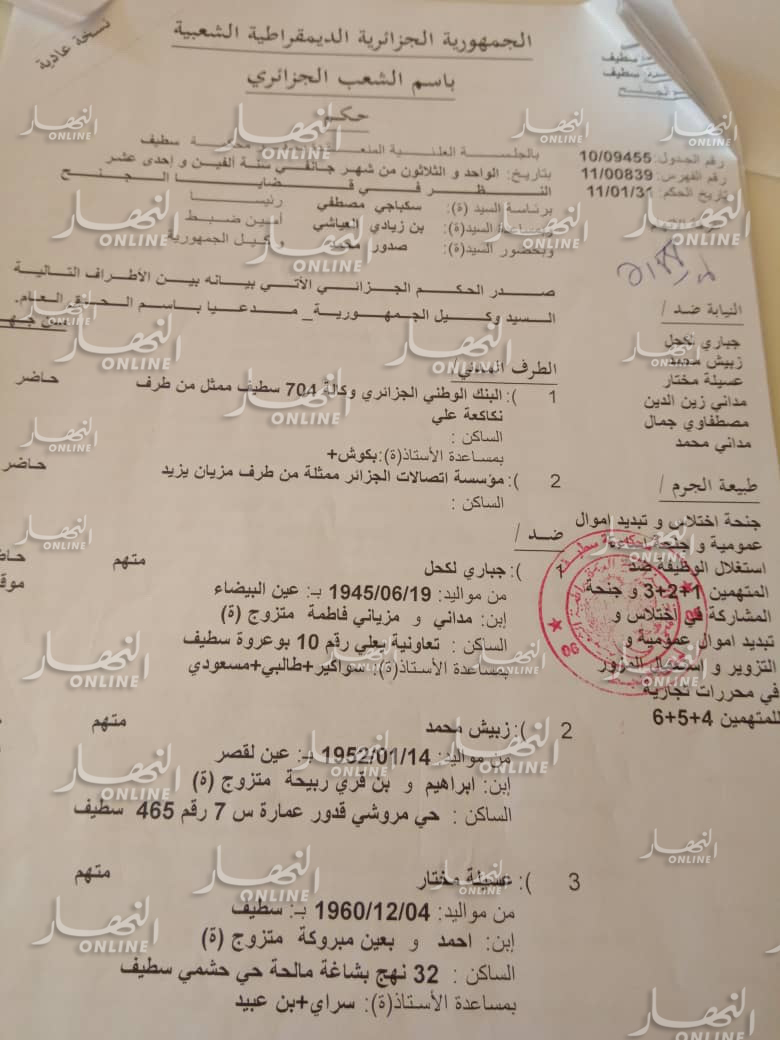 نسخة عادية
الجمهورية الجزائرية الديمقراطية الشعبية
باسم الشعب الجزائري
حكم
سطيف
سطيف
الجنح
رقم الجدول: 10/09455
رقم الفهرس: 11/00839
تاريخ الحكم: 11/01/31
بالجلسة العلنية سطيف
بتاريخ: الواحد و الثلاثون من شهر جانفي سنة الفين و إحدى عشر
النظر في قضايا الجنح
برئاسة السيد (ة): سكباجي مصطفي رئيسا
وبمساعدة السيد(ة): بن زيادي العياشي أمين ضبط
وبحضور السيد(ة): صدور محمد وكيل الجمهورية
صدر الحكم الجزائي الأتي بيانه بين الأطراف التالية
السيد وكيل الجمهورية_ مدعيا باسم الحق العام.
النيابة ضد /
جباري لكحل
زبيش محمد
عسيلة مختار
مداني زين الدين
مصطفاوي جمال
مداني محمد
طبيعة الجرم /
جنحة اختلاس و تبديد اموال
عمومية و جنحة
استغلال الوظيفة ضد
المتهمين 1+2+3 و جنحة
المشاركة في اختلاس و
تبديد اموال عمومية و
التزوير و إستعمال المزور
في محررات تجارية
للمتهمين 4+5+6
الطرف المدني/
1 ): البنك الوطني الجزائري وكالة 704 سطيف ممثل من طرف حاضر
نكاكعة علي
الساكن :
بمساعدة الأستاذ(ة):بكوش+
2 ): مؤسسة اتصالات الجزائر ممثلة من طرف مزيان يزيد حاضر
الساكن :
ضد /
): جباري لكحل متهم
من مواليد: 1945/06/19 بـ: عين البيضاء
إبن: مداني و مزياني فاطمة متزوج (ة)
الساكن : تعاونية يعلي رقم 10 بوعروة سطيف
بمساعدة الأستاذ(ة): سواكير+طالبي+مسعودي
2 ): زبيش محمد متهم
من مواليد: 1952/01/14 بـ: عين لقصر
إبن: ابراهيم و بن قري ربيحة متزوج (ة)
الساكن : حي مروشي قدور عمارة س 7 رقم 465 سطيف
3 ): عسيلة مختار متهم
من مواليد: 1960/12/04 بـ: سطيف
إبن: احمد و بعين مبروكة متزوج (ة)
الساكن : 32 نهج بشاغة مالحة حي حشمي سطيف
بمساعدة الأستاذ(ة): سراي+بن عبيد
النهار ONLINE